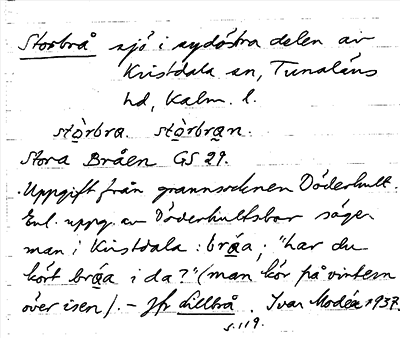 Storbrå sjö i sydöstra delen av
Kristdala sn, Tunaläns
hd, Kalm. l.
stòrbra. stòrbran.
Stora Bråen GS 29.
Uppgift från grannsocknen Döderhult.
Enl. uppg. av Döderhultsbor säger
man i Kristdala: bråa; "har du
kört bråa i da?" (man kör på vintern
över isen). – Jfr Lillbrå. Ivar Modéer 1937.
s. 119.